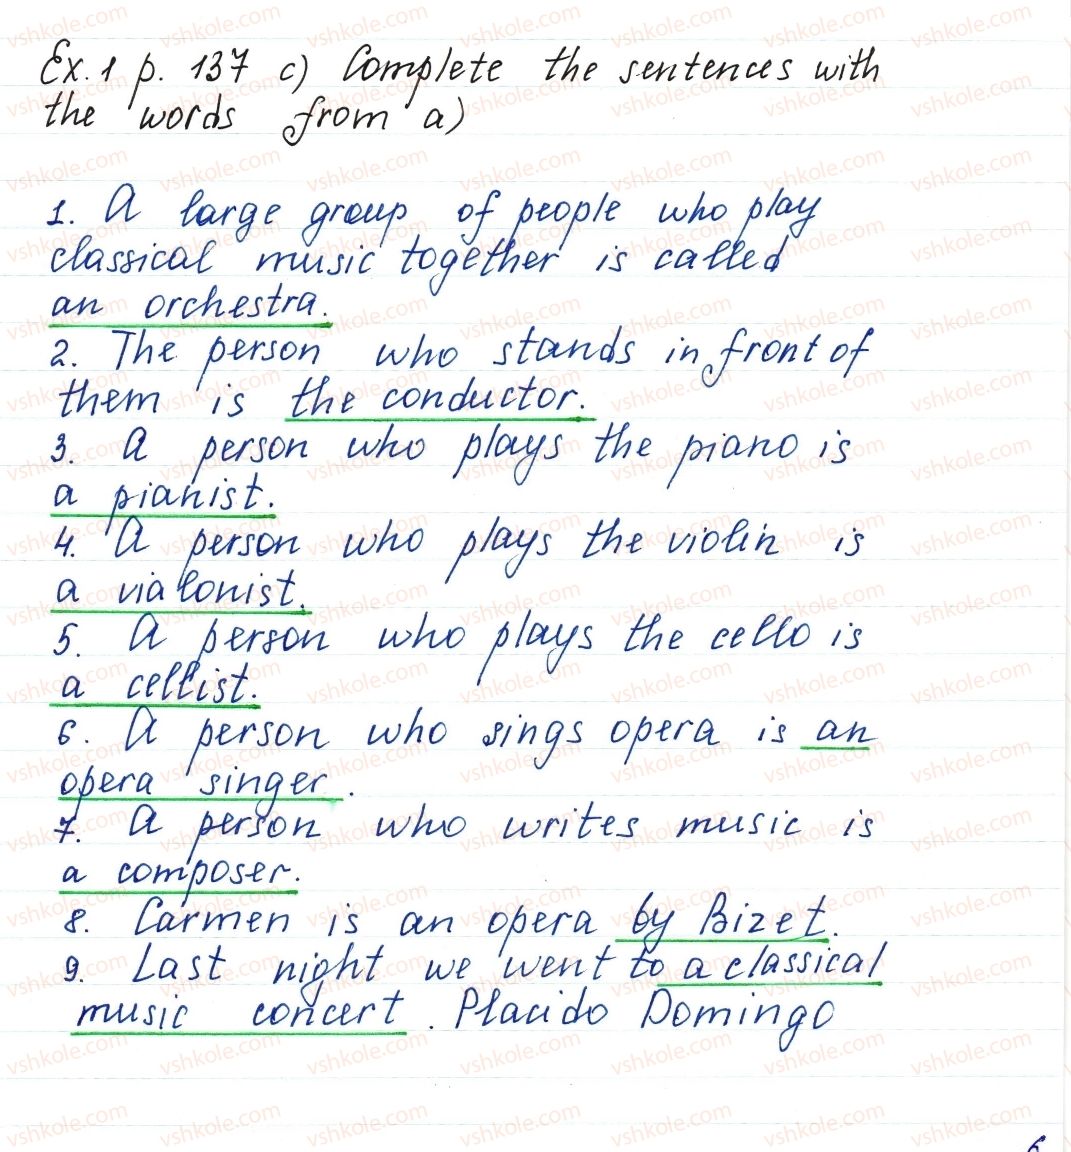 Ex. 1 p. 137 c) Complete the sentences with
the words from a)
1. A large group of people who play
classical music together is called
an orchestra.
2. The person who stands in front of
them is the conductor.
3. A person who plays the piano is
a pianist.
4. A person who plays the violin is
a vialonist.
5. A person who plays the cello is
a cellist.
6. A person who sings opera is an
opera singer.
7. A person who writes music is
a composer.
8. Carmen is an opera by Bizet.
9. Last night we went to a classical
music concert. Placido Domingo
vshkole.com